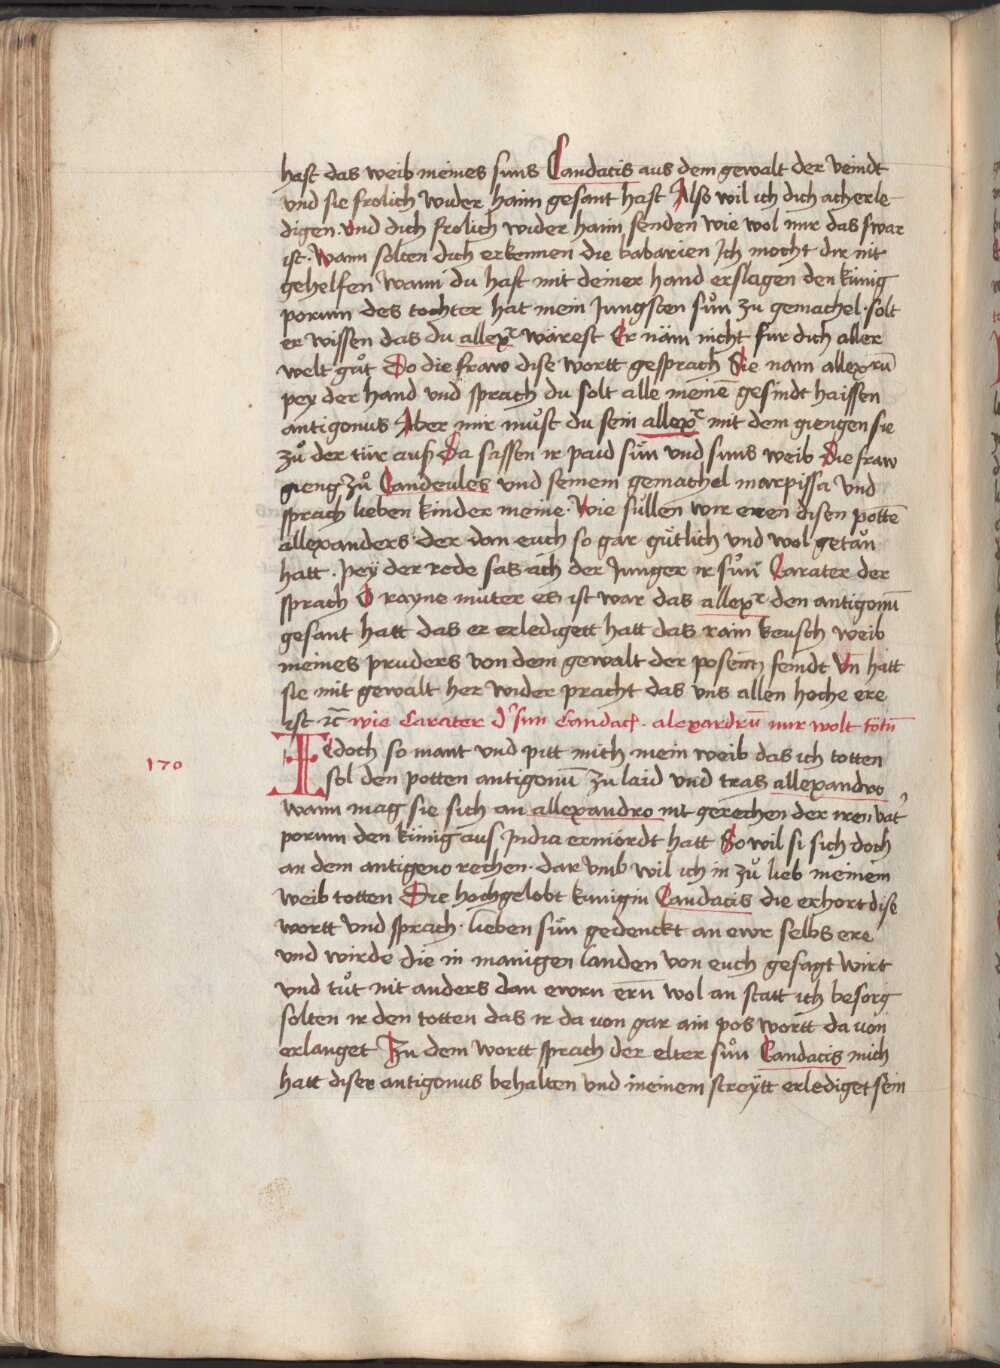 hast das weib meines suns Candacis aus dem gewalt der veindt
und sie frolich wider haim gesant hast Also wil ich dich ach erle
digen. Und dich frolich wider haim senden wie wol mir das swar
ist. Wann solten dich erkennen die babarien Ich mocht dir nit
gehelfen wann du hast mit deiner hand erslagen den künig
porum des tochter hat mein Jungsten sůn zu gemachel. solt
er wissen das du allexr wärest Er näm nicht fur dich aller
welt gůt Do die fraw dise wortt gesprach Sie nam allexrū
pey der hand und sprach du solt alle meinē gesindt haissen
antigonus Aber mir můst du sein allexr mit dem giengen sie
zů der tür auß Da sassen ir paid sůn und suns weib Die fraw
gieng zů Candeules und seinem gemachel marpissa Und
sprach lieben kinder meine. Wie süllen wir eren disen pottē
allexanders der dan euch so gar gütlich und wol getān
hatt. Pey der rede sas ach der Junger ir sůn Carater der
sprach O rayne můter es ist war das allexr den antigonū
gesant hatt das er erledigett hatt das rain keusch weib
meines pruders von dem gewalt der posen feindt Vn̄ hatt
sie mit gewalt her wider pracht das uns allen hoche ere
ist ꝛc̄ wie Carater dʼ sun Candac. alexardrū nur wolt tötn̄
170
Idoch so mant und pitt mich mein weib das ich totten
sol den potten antigonū zu laid und tras allexandro
wann mag sie sich an allexandro nit gerechen der iren vatʼ
porum den künig aus India ermördt hatt So wil si sich doch
an dem antigeno rechen. dar umb wil ich in zů lieb meinem
weib totten Die hochgelobt kunigin Candacis die erhort dise
wortt und sprach. lieben sůn gedenckt an ewr selbs ere
und wirde die in manigen landen von euch gesagt wirt
und tůt nit anders dan ewrn ern̄ wol an statt ich besorg
solten ir den totten das ir da von gar ain pos wortt da von
erlanget Zu dem wortt sprach der elter sůn Candacis mich
hatt diser antigonus behalten und in meinem streytt erlediget sein